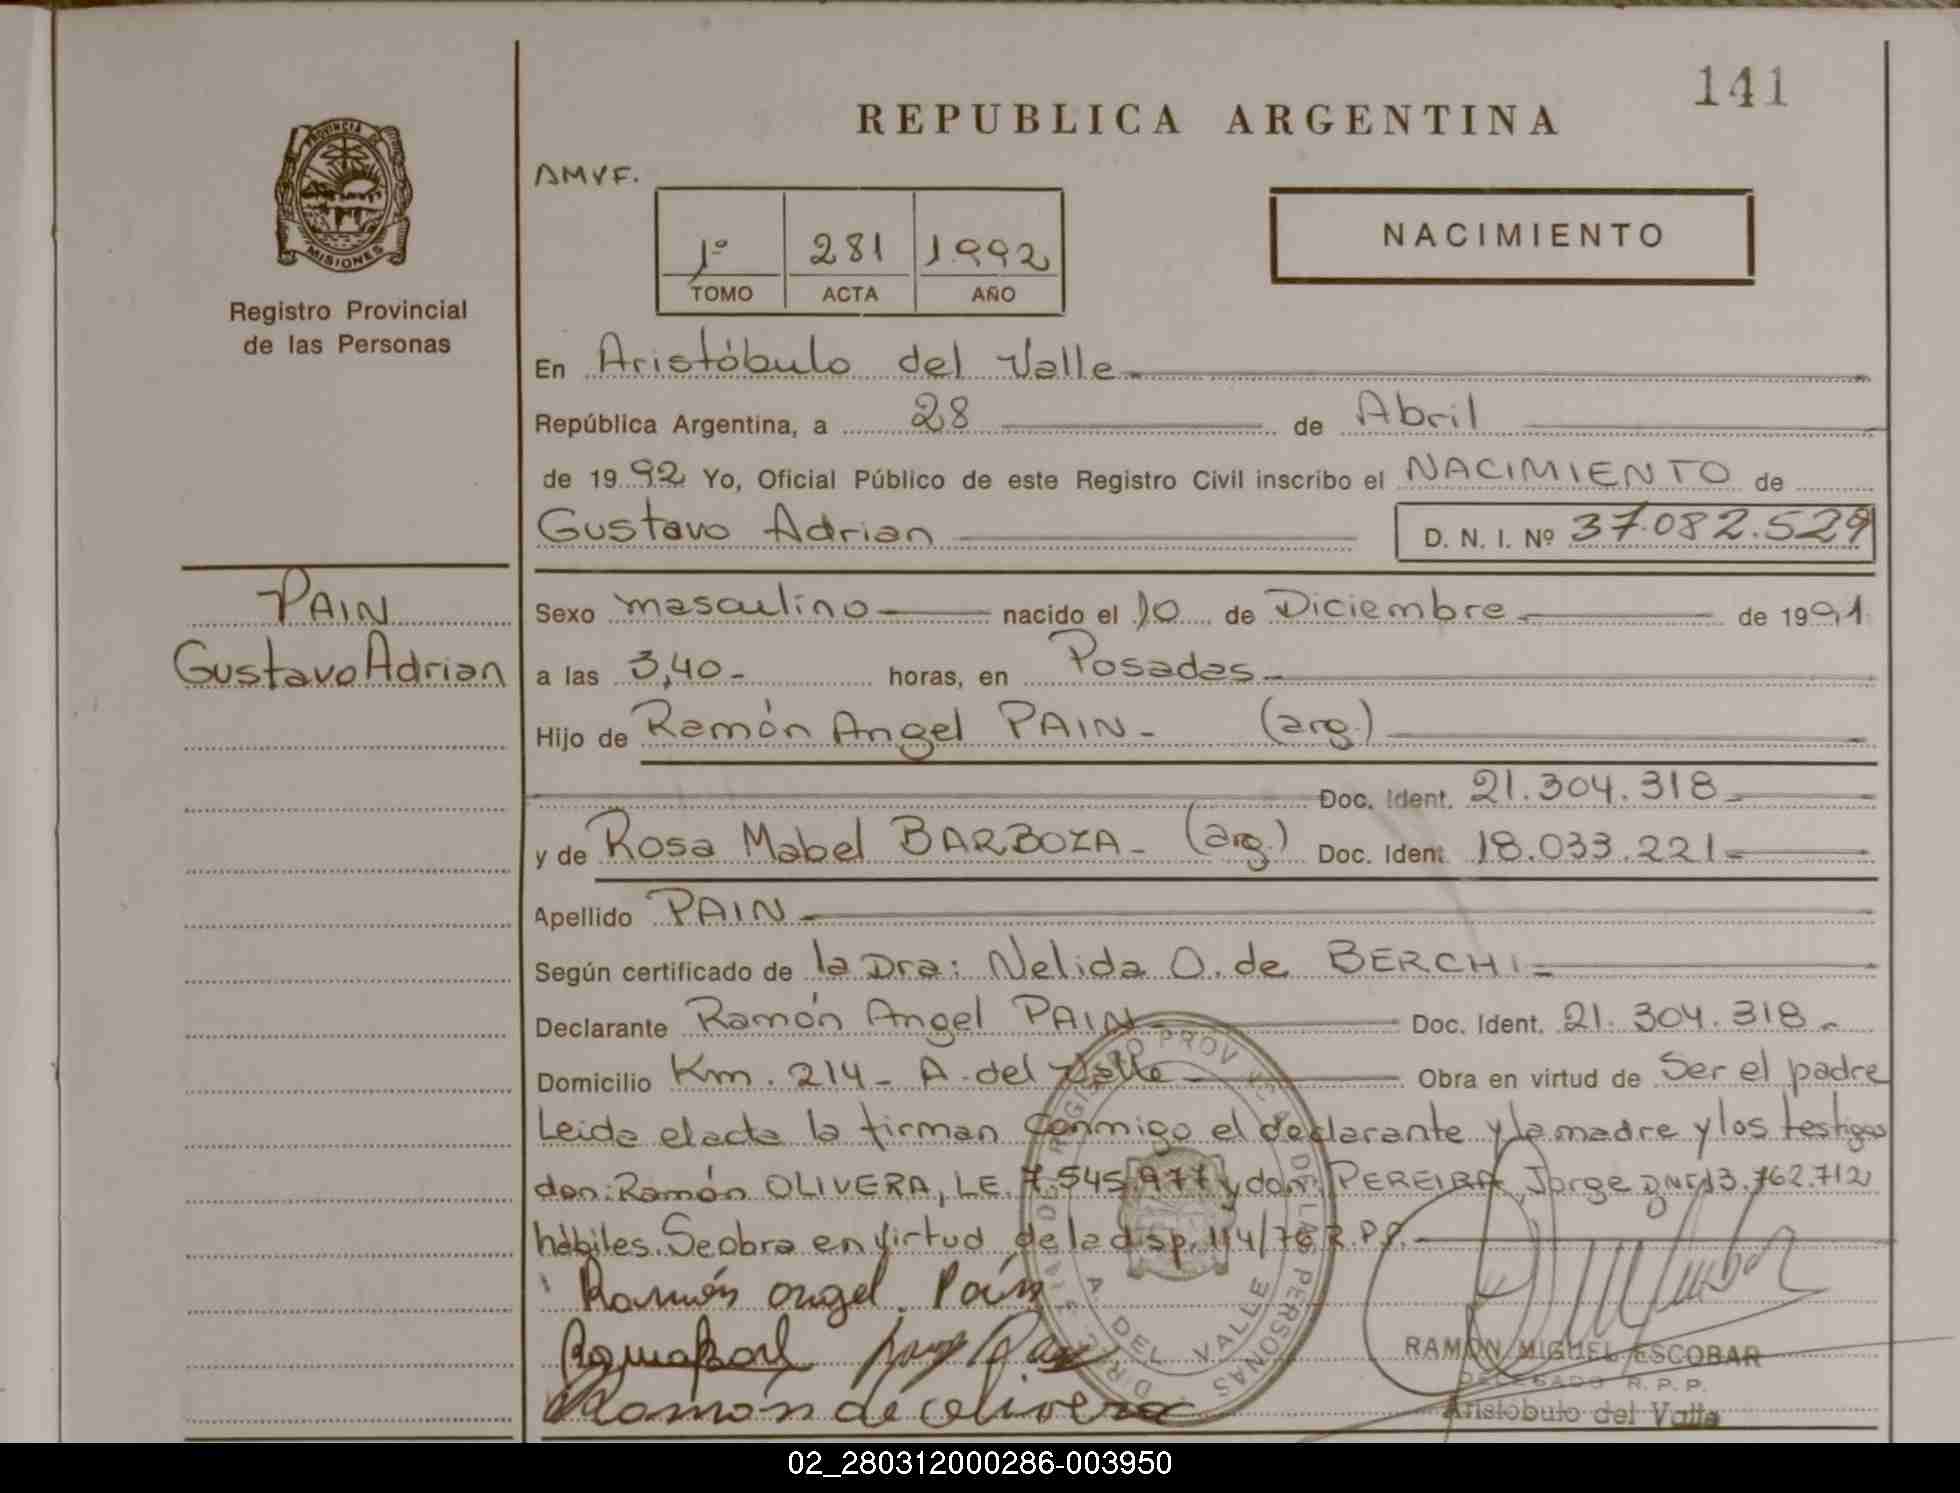 141
REPUBLICA ARGENTINA
PROVINCIA DE
MISIONES
Registro Provincial
de las Personas
AMVF.
1º 281 1992
TOMO ACTA AÑO
NACIMIENTO
En Aristóbulo del Valle
República Argentina, a 28 de Abril
de 1992 Yo, Oficial Público de este Registro Civil inscribo el NACIMIENTO de
Gustavo Adrian D. N. I. Nº 37.082.529
PAIN
Gustavo Adrian
Sexo masculino nacido el 10 de Diciembre de 1991
a las 3,40- horas, en Posadas
Hijo de Ramón Angel PAIN- (arg.)
Doc. Ident. 21.304.318
y de Rosa Mabel BARBOZA- (arg.) Doc. Ident. 18.033.221
Apellido PAIN
Según certificado de la Dra: Nelida O. de BERCHI
Declarante Ramón Angel PAIN Doc. Ident. 21.304.318-
Domicilio Km. 214- A. del Valle Obra en virtud de Ser el padre
Leida el acta la firman conmigo el declarante y la madre y los testigos
don: Ramón OLIVERA, LE. 7.545.977 y don: PEREIRA, Jorge DNI 13.762.712
hábiles. Se obra en virtud de la disp. 114/76 R.P.P.
Ramón Angel Pain
Ramón de Olivera
A DEL VALLE
RAMON MIGUEL ESCOBAR
DELEGADO R.P.P.
Aristóbulo del Valle
02_280312000286-003950